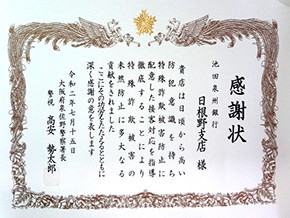 感謝状
池田泉州銀行
日根野支店 様
貴店は日頃から高い
防犯意識を持ち
特殊詐欺被害防止に
配意した接客対応を指導
徹底することにより
特殊詐欺被害の
未然防止に多大なる
貢献をされました
ここにその功労をたたえるとともに
深く感謝の意を表します
令和二年七月十五日
大阪府泉佐野警察署長
警視 高安 勢太郎